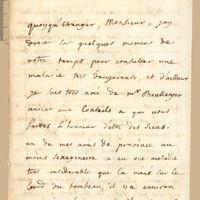 quoyque Etranger, Monsieur, j'ay
droit sur quelques momens de
votre temps pour consulter une
maladie tres dangereuse, et d'ailleurs
je suis tres ami de Mr Boullenger
ancien aux Conseils a qui vous
faites l'honneur d'etre des siens.
un de mes amis de province au
moins sexagenaire a eu une maladie
tres considerable qui l'a mené sur le
bord du tombeau, il y a environ